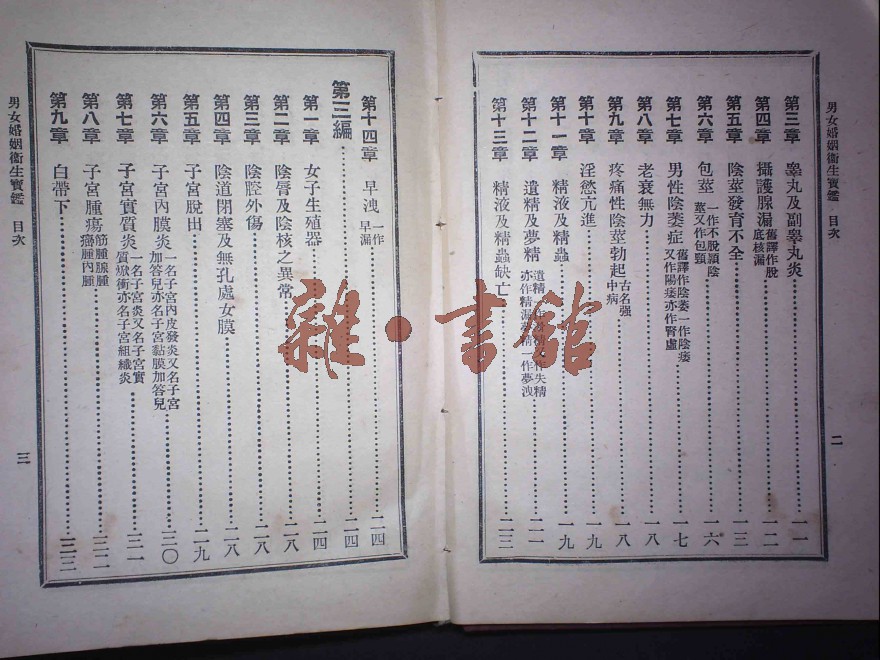 男女婚姻衞生寶鑑 目次
二
第三章 睾丸及副睾丸炎 一一
第四章 攝護腺漏 舊譯作脫底核漏 一二
第五章 陰莖發育不全 一三
第六章 包莖 一作不脫顯陰莖又作包頸 一六
第七章 男性陰萎症 舊譯作陰萎一作陰痿又作陽痿亦作腎虛 一七
第八章 老衰無力 一八
第九章 疼痛性陰莖勃起 古名强中病 一八
第十章 淫慾亢進 一九
第十一章 精液及精蟲 一九
第十二章 遺精及夢精 二一
第十三章 精液及精蟲缺亡 二三
第十四章 早洩 一作早漏 二四
第三編 二四
第一章 女子生殖器 二四
第二章 陰唇及陰核之異常 二八
第三章 陰腔外傷 二八
第四章 陰道閉塞及無孔處女膜 二八
第五章 子宮脫出 二九
第六章 子宮內膜炎 一名子宮內皮發炎又名子宮加答兒亦名子宮黏膜加答兒 三〇
第七章 子宮實質炎 一名子宮炎又名子宮實質焮衝亦名子宮組織炎 三二
第八章 子宮腫瘍 筋腫腺腫癌腫內腫 三二
第九章 白帶下 三三
男女婚姻衞生寶鑑 目次
三
雜·書館